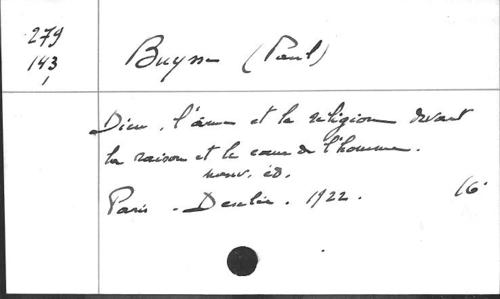 279
143
1
Buysse (Paul)
Dieu, l'âme et la religion devant
la raison et le cœur de l'homme.
nouv. éd.
Paris - Desclée. 1922. 16°